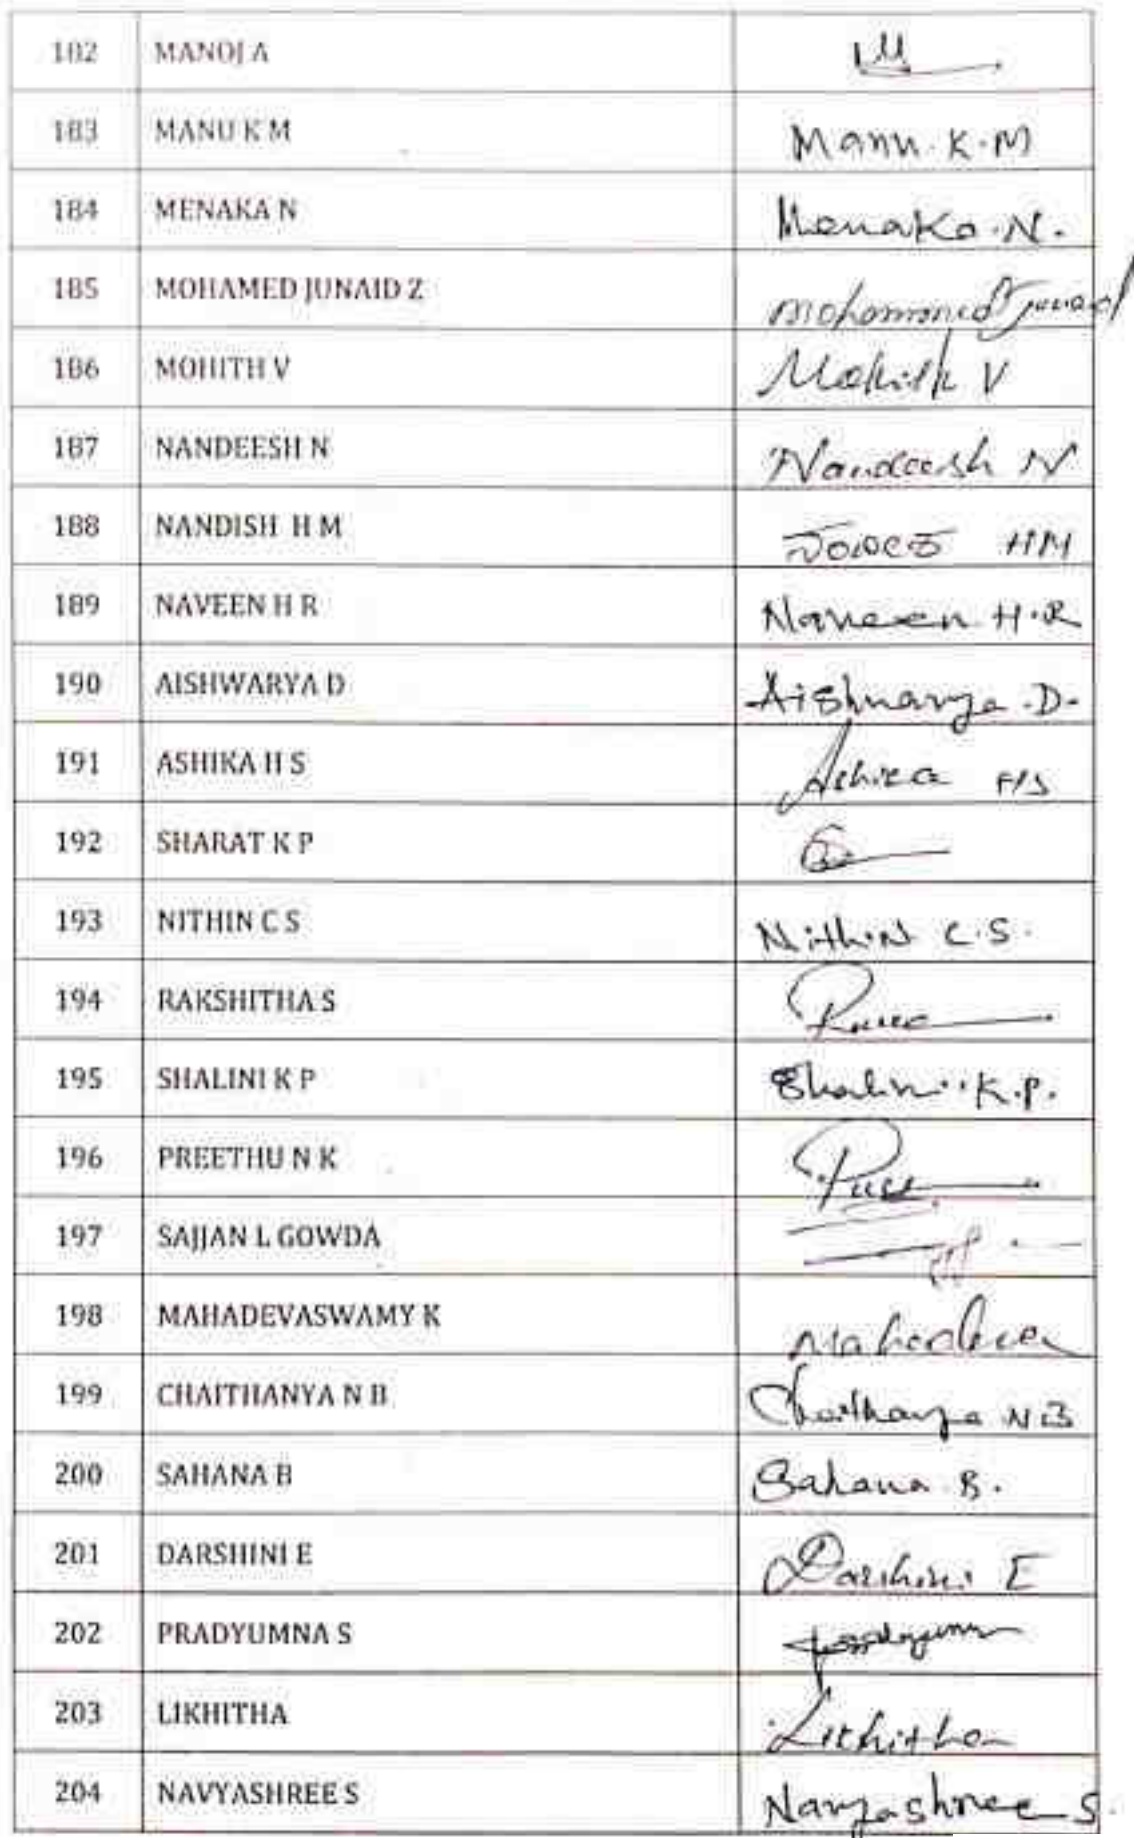 182 MANOJ A M
183 MANU K M Manu.K.M
184 MENAKA N Menaka.N.
185 MOHAMED JUNAID Z Mohammed Junaid
186 MOHITH V Mohith V
187 NANDEESH N Nandeesh N
188 NANDISH H M HM
189 NAVEEN H R Naveen H.R
190 AISHWARYA D Aishwarya.D.
191 ASHIKA H S Ashika HS
192 SHARAT K P
193 NITHIN C S NithiN C.S.
194 RAKSHITHA S
195 SHALINI K P Shalini.K.P.
196 PREETHU N K
197 SAJJAN L GOWDA
198 MAHADEVASWAMY K
199 CHAITHANYA N B Chaithanya NB
200 SAHANA B Sahana B.
201 DARSHINI E Darshini E
202 PRADYUMNA S
203 LIKHITHA Likhitha
204 NAVYASHREE S Navyashree S.